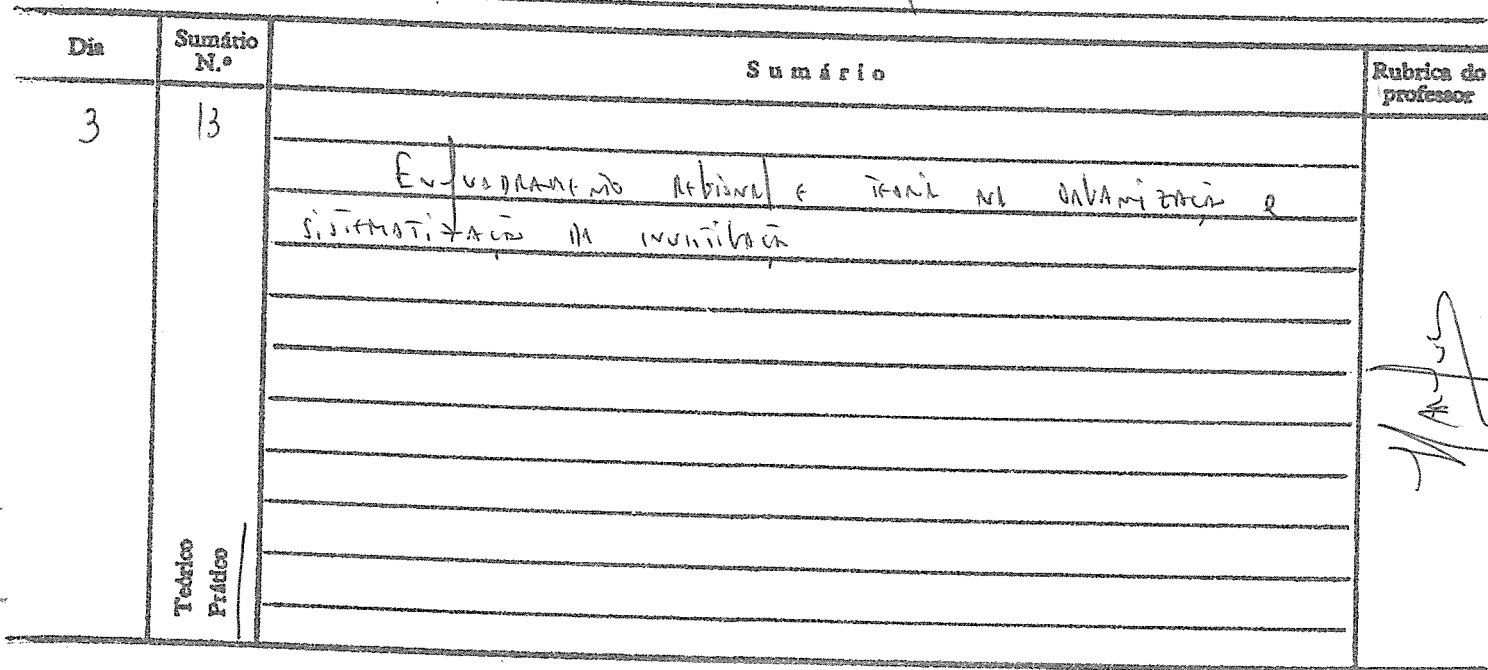 Dia
Sumário N.º
Sumário
Rubrica do professor
3
13
Enquadramento regional e teoria na organização e
sistematização da investigação
Teórico
Prático